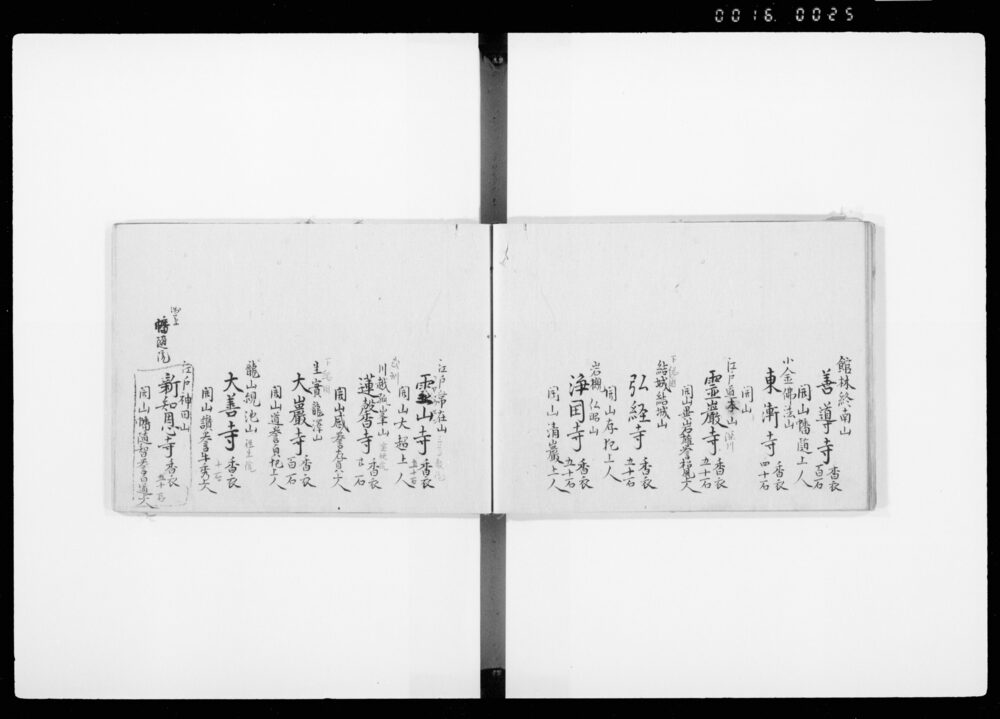 0016 0025
館林終南山
善導寺
香衣
百石
開山幡随上人
小金佛法山
東漸寺
香衣
四十石
開山
江戸道本山
靈巖寺
香衣
五十石
下総国
結城結城山
弘経寺
香衣
五十石
開山存把上人
岩槻仏眼山
浄国寺
香衣
五十石
開山清巖上人
江戸
靈山寺
香衣
五十石
開山大超上人
武州
川越孤峯山
蓮馨寺
香衣
開山感誉存貞大
下総国
生實龍澤山
大巖寺
香衣
百石
開山道誉貞把上人
瀧山観池山
大善寺
香衣
十石
開山讃誉牛秀大
江戸神田山
新知恩寺
香衣
五十石
開山幡随智誉白道大
幡随院